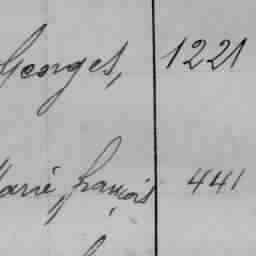 Georges, 1221
Marie françois 441